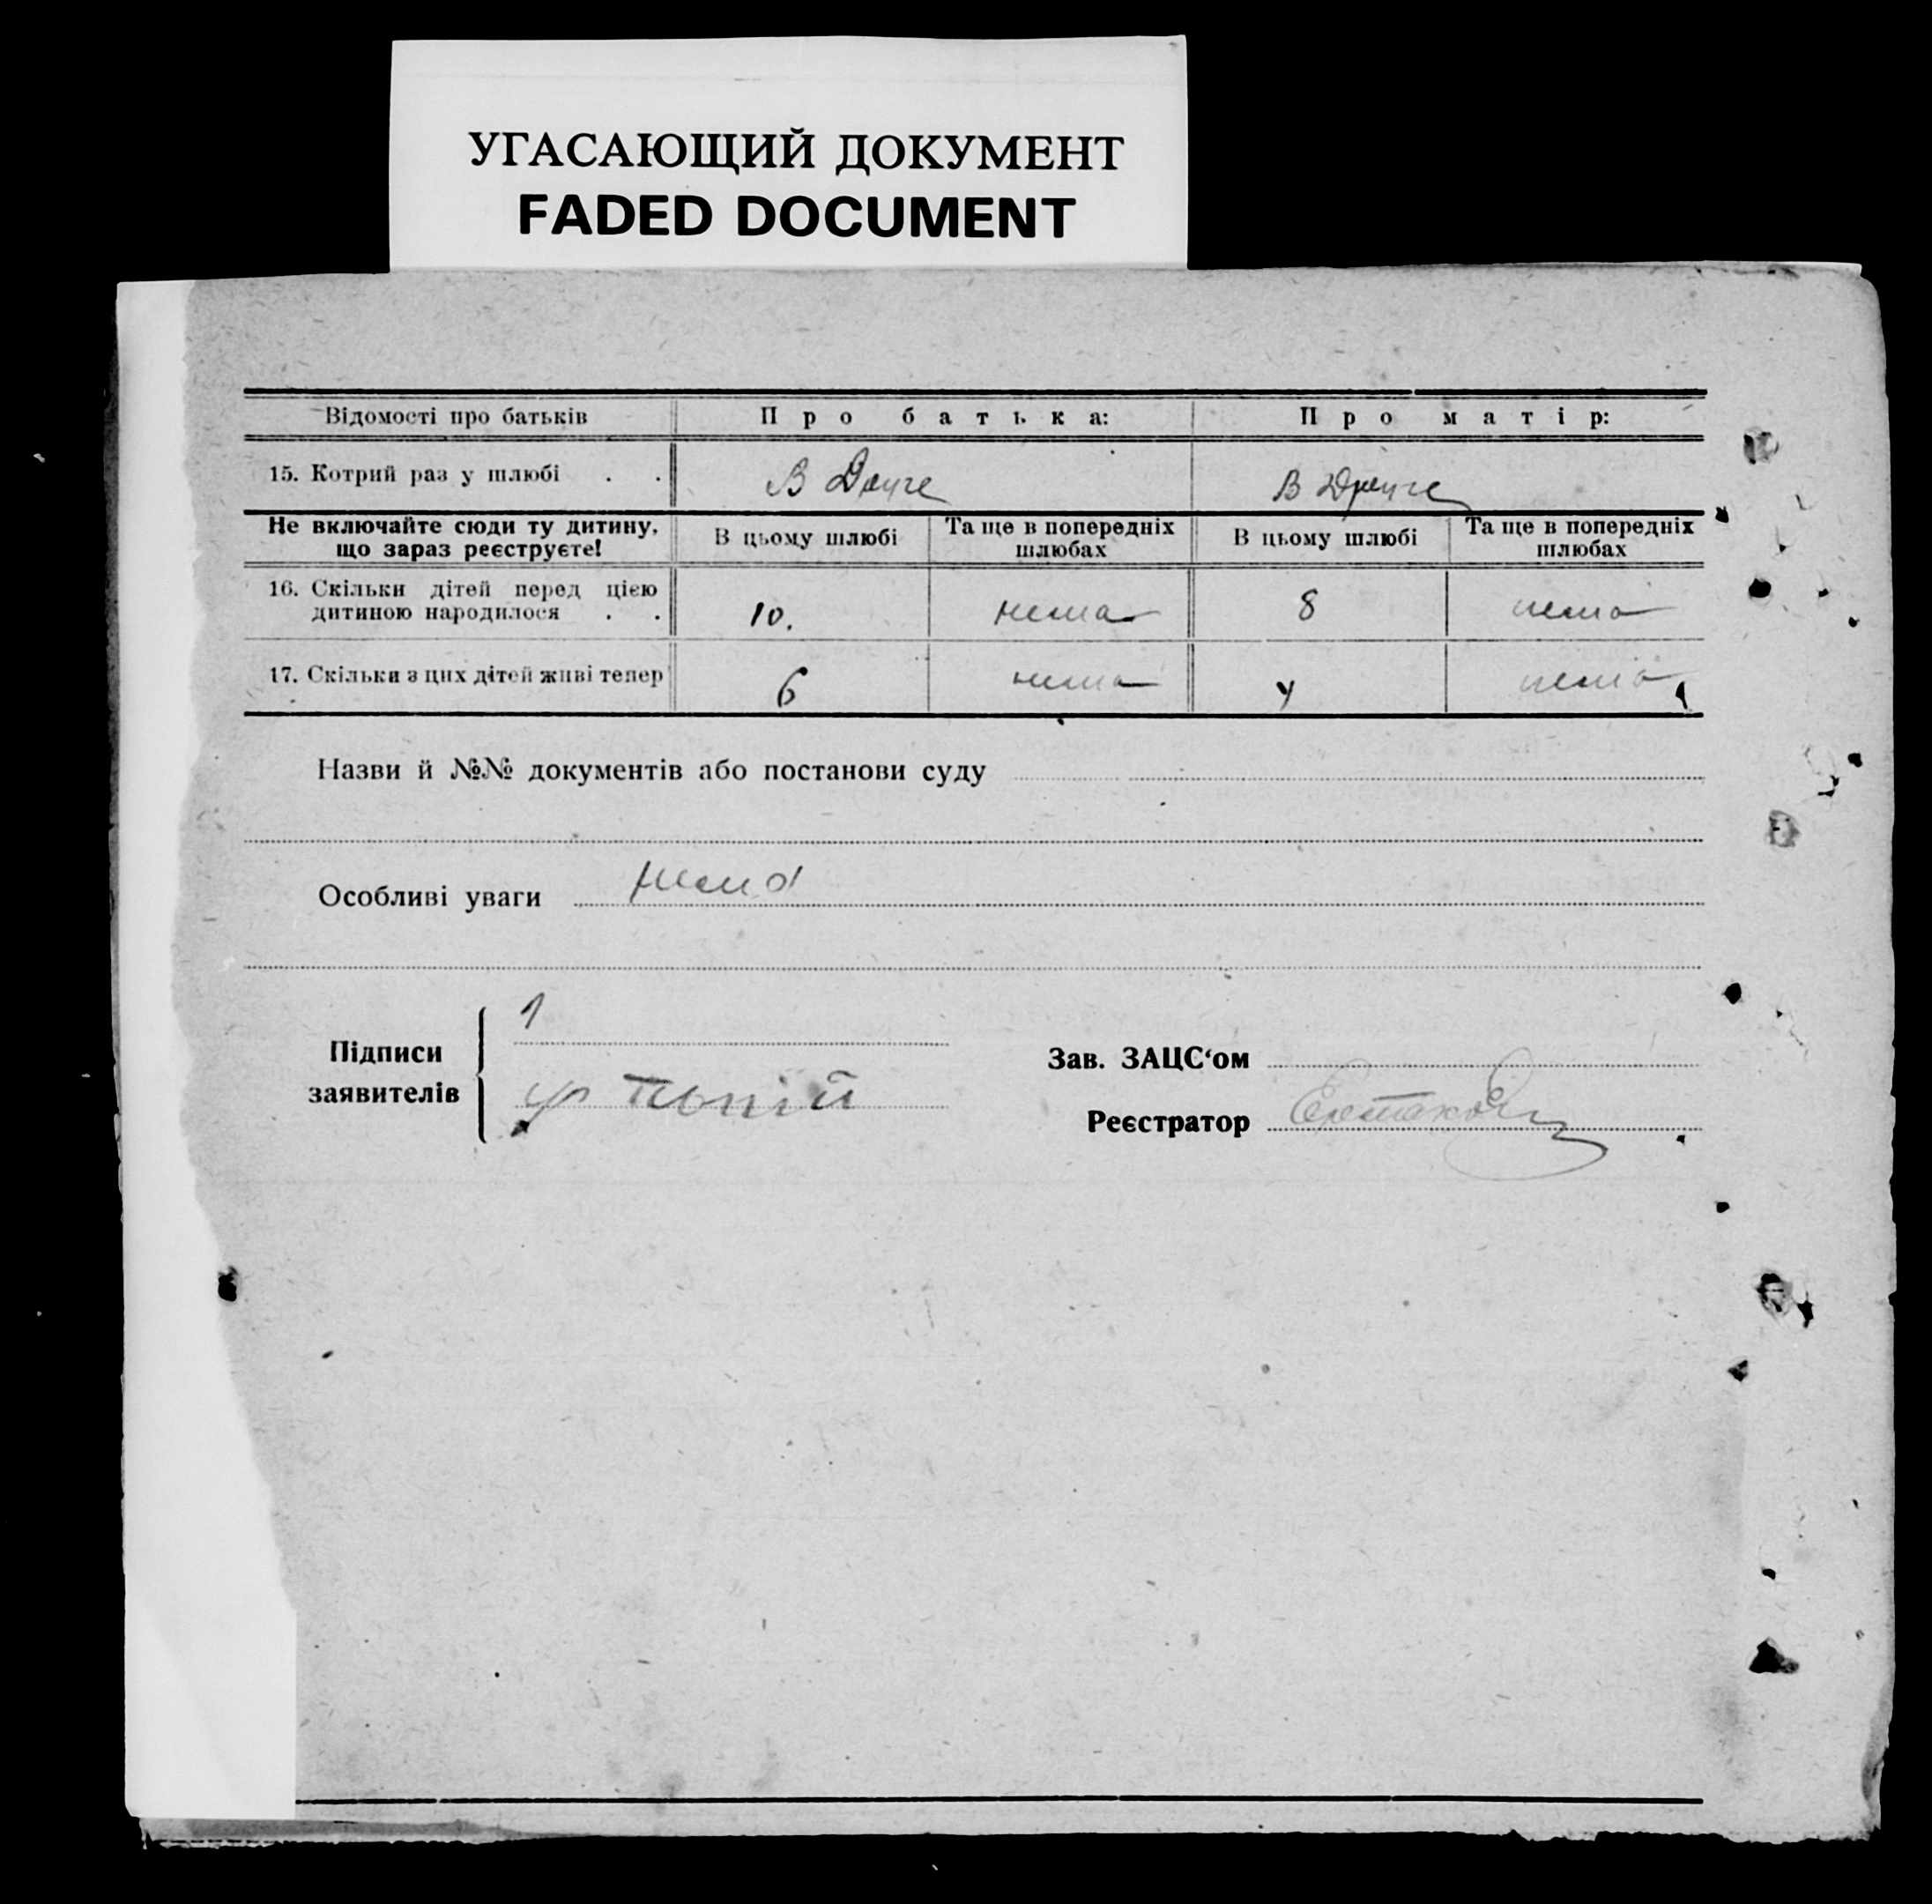 УГАСАЮЩИЙ ДОКУМЕНТ
FADED DOCUMENT
Відомості про батьків Про батька: Про матір:
15. Котрий раз у шлюбі . . В Друге В Друге
Не включайте сюди ту дитину, що зараз реєструєте! В цьому шлюбі Та ще в попередніх шлюбах В цьому шлюбі Та ще в попередніх шлюбах
16. Скільки дітей перед цією
дитиною народилося . . 10. нема 8 нема
17. Скільки з цих дітей живі тепер 6 нема 4 нема
Назви й №№ документів або постанови суду
Особливі уваги нема
1
Підписи
заявителів
Зав. ЗАЦС‘ом
Реєстратор